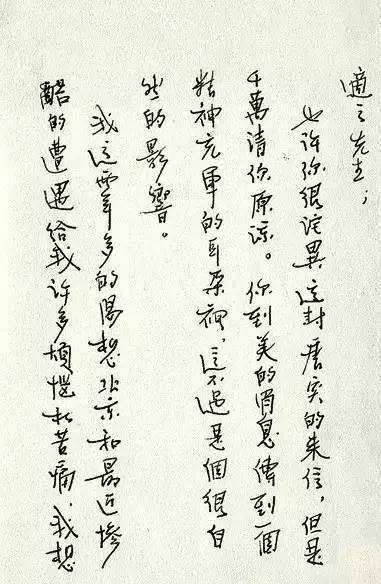 適之先生；
也許你很詫異這封唐突的來信，但是
千萬請你原諒。你到美的消息傳到一個
精神充軍的耳朵裡，這不過是個很自
然的影響。
我這兩年多的渴想北京和最近慘
酷的遭遇給我許多煩惱和苦痛。我想